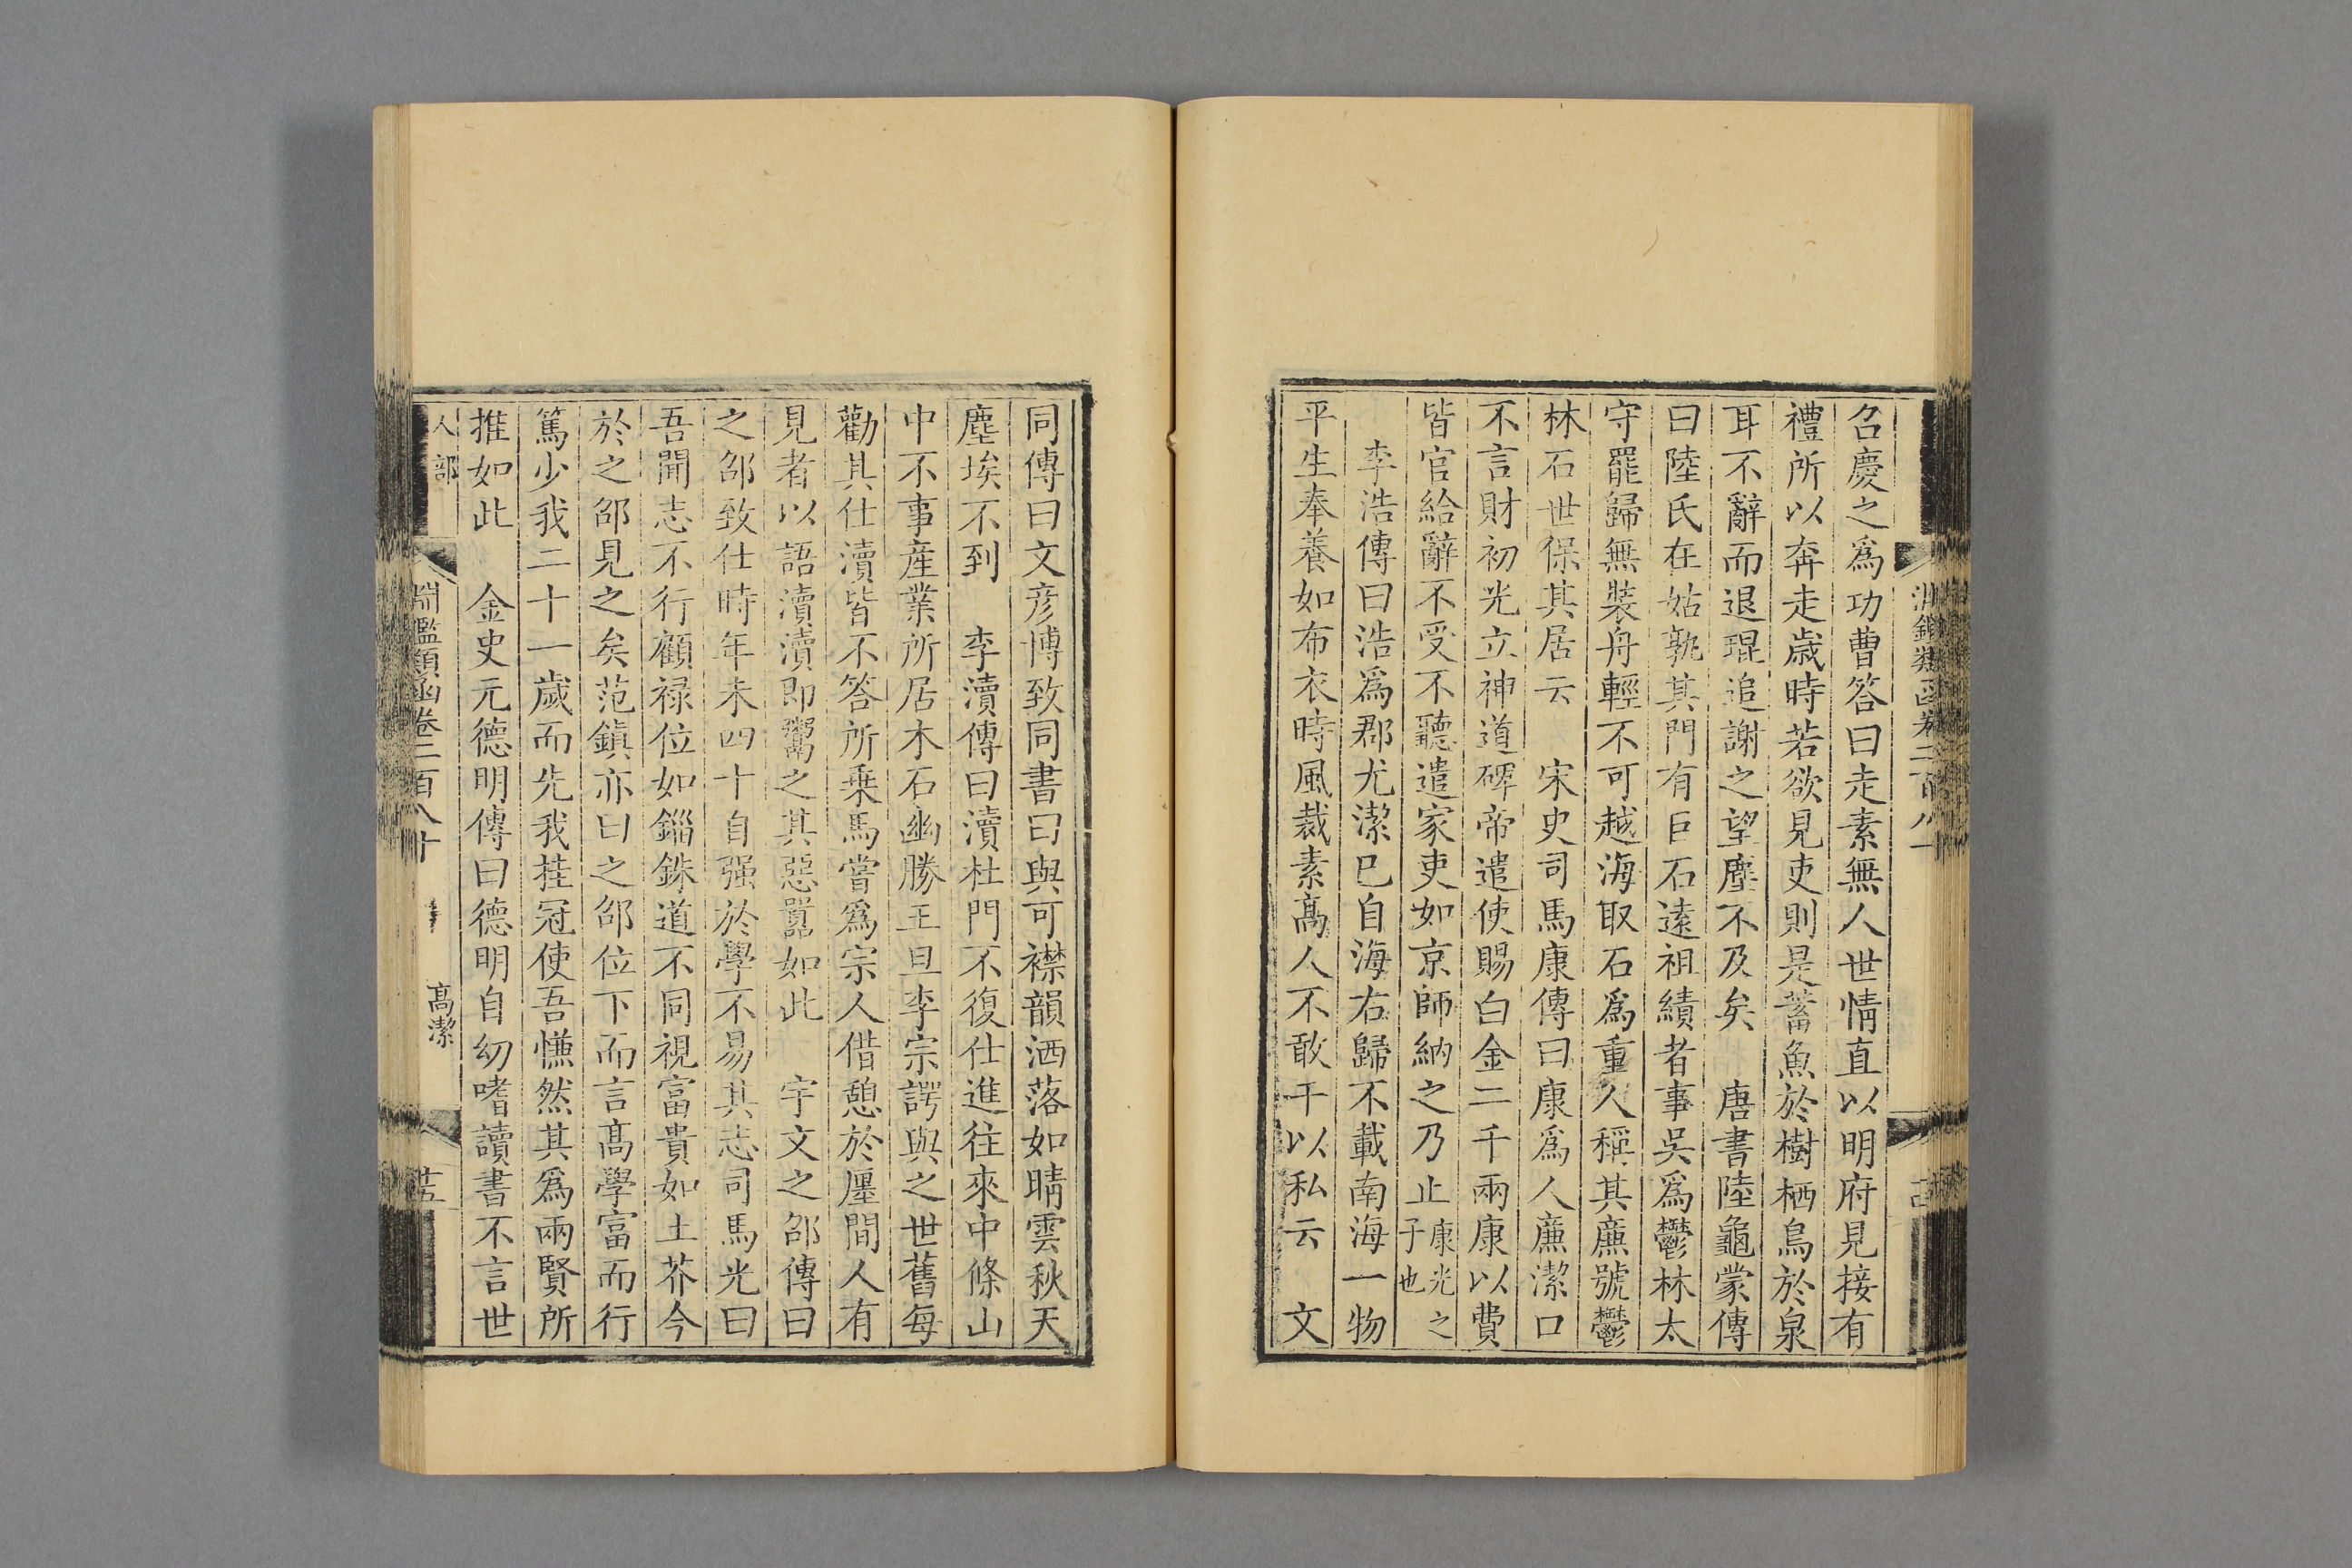 召慶之爲功曹答曰走素無人世情直以明府見接有
禮所以奔走歳時若欲見吏則是蓄魚於樹栖鳥於泉
耳不辭而退琨追謝之望塵不及矣　唐書陸龜蒙傳
曰陸氏在姑孰其門有巨石遠祖績者事吳爲鬱林太
守罷歸無裝舟輕不可越海取石爲重人稱其廉號鬱
林石世保其居云　宋史司馬康傳曰康爲人廉潔口
不言財初光立神道碑帝遣使賜白金二千兩康以費
皆官給辭不受不聽遣家吏如京師納之乃止康光之子也
李浩傳曰浩爲郡尤潔巳自海右歸不載南海一物
平生奉養如布衣時風裁素高人不敢干以私云　文
同傳曰文彦博致同書曰與可襟韻洒落如晴雲秋天
塵埃不到　李瀆傳曰瀆杜門不復仕進往來中條山
中不事産業所居木石幽勝王旦李宗諤與之世舊每
勸其仕瀆皆不答所乗馬嘗爲宗人借憩於廛間人有
見者以語瀆瀆即鬻之其惡囂如此　宇文之邵傳曰
之邵致仕時年未四十自强於學不易其志司馬光曰
吾聞志不行顧祿位如錙銖道不同視富貴如土芥今
於之邵見之矣范鎮亦曰之邵位下而言高學富而行
篤少我二十一歲而先我挂冠使吾慊然其爲兩賢所
推如此　金史元德明傳曰德明自幼嗜讀書不言世
人部
淵鑑類函卷二百八十
高潔